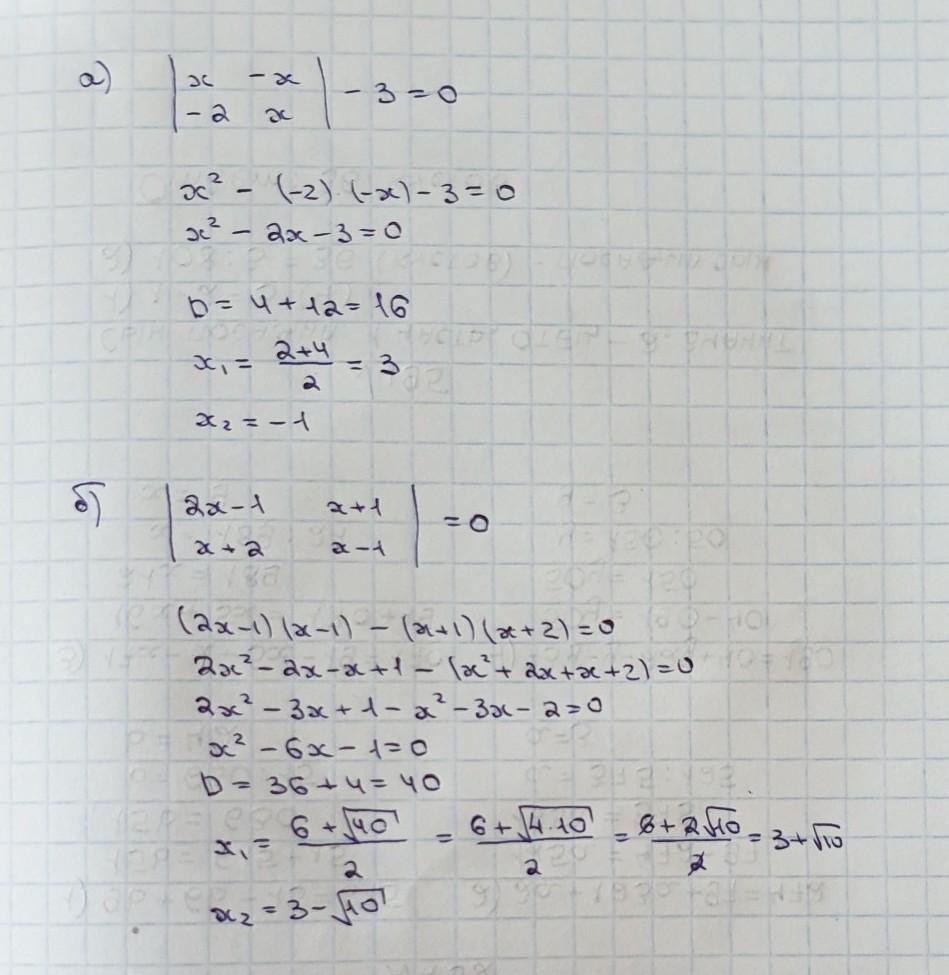 а) | x -x | - 3 = 0
| -2 x |
x² - (-2)·(-x) - 3 = 0
x² - 2x - 3 = 0
D = 4 + 12 = 16
x₁ = (2+4)/2 = 3
x₂ = -1
б) | 2x-1 x+1 | = 0
| x+2 x-1 |
(2x-1)(x-1) - (x+1)(x+2) = 0
2x² - 2x - x + 1 - (x² + 2x + x + 2) = 0
2x² - 3x + 1 - x² - 3x - 2 = 0
x² - 6x - 1 = 0
D = 36 + 4 = 40
x₁ = (6 + √40)/2 = (6 + √4·10)/2 = (6 + 2√10)/2 = 3 + √10
x₂ = 3 - √10